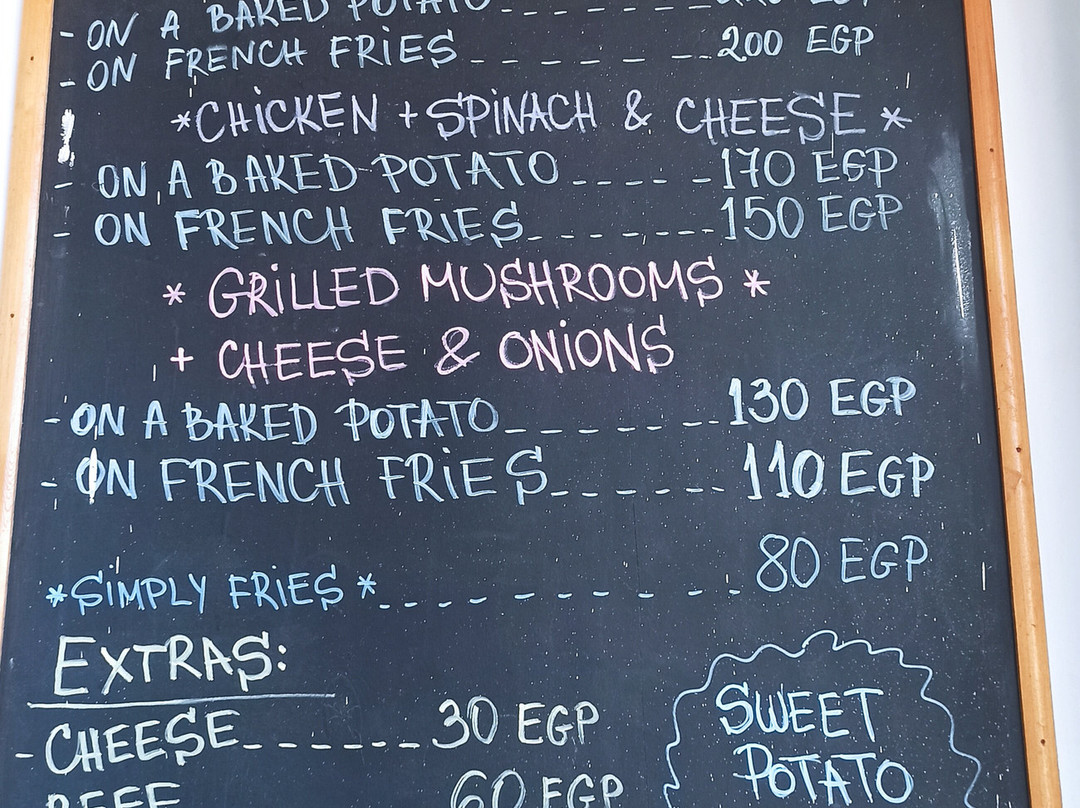 - ON A BAKED POTATO - - - - - - - - EGP
- ON FRENCH FRIES - - - - - - - 200 EGP
*CHiCKEN + SPiNACH & CHEESE *
- ON A BAKED POTATO - - - - - 170 EGP
- ON FRENCH FRiES - - - - - - - - 150 EGP
* GRiLLED MUSHROOMS *
+ CHEESE & ONiONS
- ON A BAKED POTATO - - - - - - - - 130 EGP
- ON FRENCH FRiES - - - - - - - 110 EGP
*SiMPLY FRiES * - - - - - - - - - - - - 80 EGP
EXTRAS:
- CHEESE - - - - - - - 30 EGP
BEEF 60 EGP
SWEET
POTATO